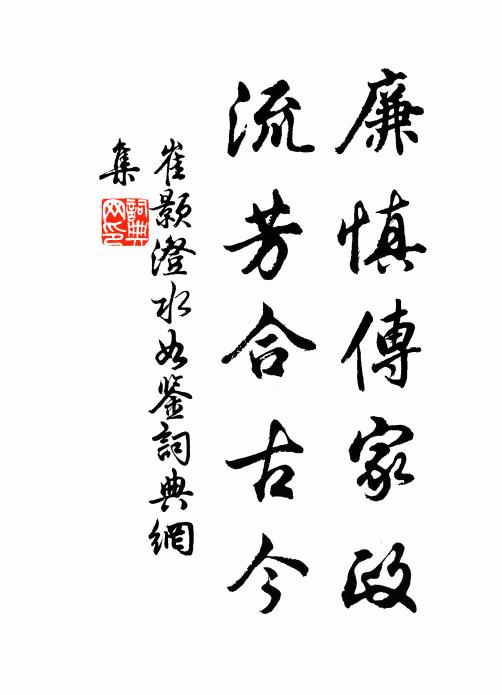 廉慎傳家政
流芳合古今
崔顥澄水如鉴詞典網
集
詞典
网印